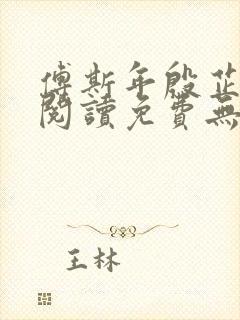 傅斯年殷芷
閱讀免費無
王林